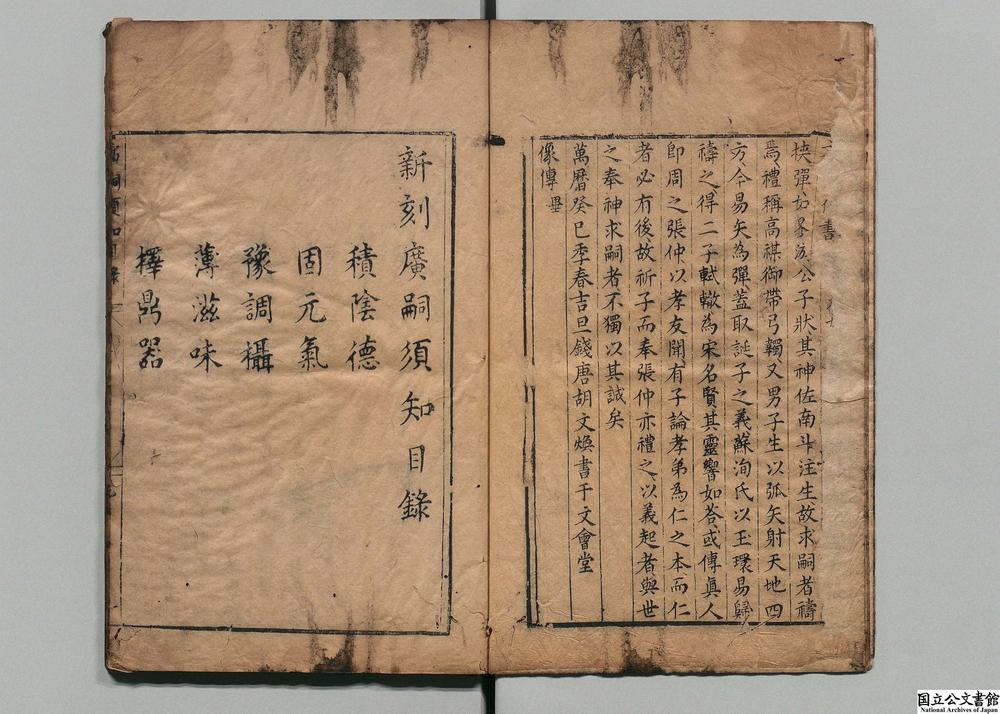 挾彈如公子狀其神佐南斗注生故求嗣者禱
焉禮稱高禖御帶弓韣又男子生以弧矢射天地四
方今易矢為彈蓋取誕子之義蘇洵氏以玉環易歸
禱之得二子軾轍為宋名賢其靈響如荅或傳真人
即周之張仲以孝友開有子論孝弟為仁之本而仁
者必有後故祈子而奉張仲亦禮之以義起者與世
之奉神求嗣者不獨以其誠矣
萬曆癸巳季春吉旦錢唐胡文煥書于文會堂
像傳畢
新刻廣嗣須知目錄
積陰德
固元氣
豫調攝
薄滋味
擇鼎器
廣嗣須知目錄
国立公文書館
National Archives of Japan